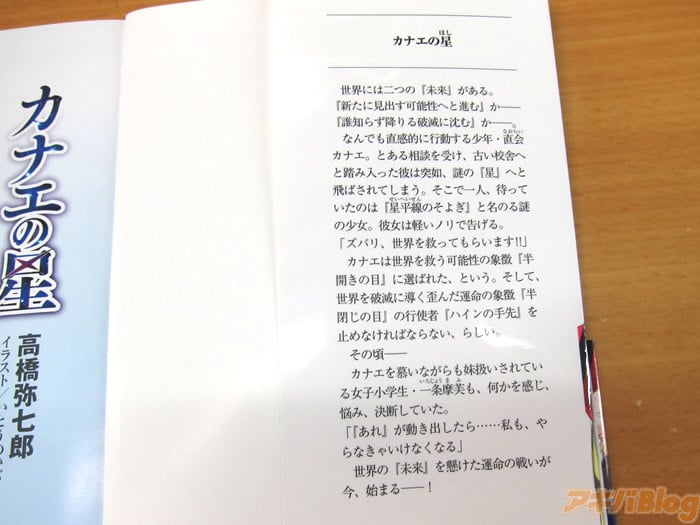 カナエの星
世界には二つの『未来』がある。
『新たに見出す可能性へと進む』か——
『誰知らず降りる破滅に沈む』か——。
なんでも直感的に行動する少年・直会
カナエ。とある相談を受け、古い校舎へ
と踏み入った彼は突如、謎の『星』へと
飛ばされてしまう。そこで一人、待って
いたのは『星平線のそよぎ』と名のる謎
の少女。彼女は軽いノリで告げる。
「ズバリ、世界を救ってもらいます!!」
カナエは世界を救う可能性の象徴『半
開きの目』に選ばれた、という。そして、
世界を破滅に導く歪んだ運命の象徴『半
閉じの目』の行使者『ハインの手先』を
止めなければならない、らしい。
その頃——
カナエを慕いながらも妹扱いされてい
る女子小学生・一条摩芙も、何かを感じ、
悩み、決断していた。
「『あれ』が動き出したら……私も、や
らなきゃいけなくなる」
世界の『未来』を懸けた運命の戦いが
今、始まる——！
カナエの星
高橋弥七郎
イラスト／いとうのいぢ
アキバBlog